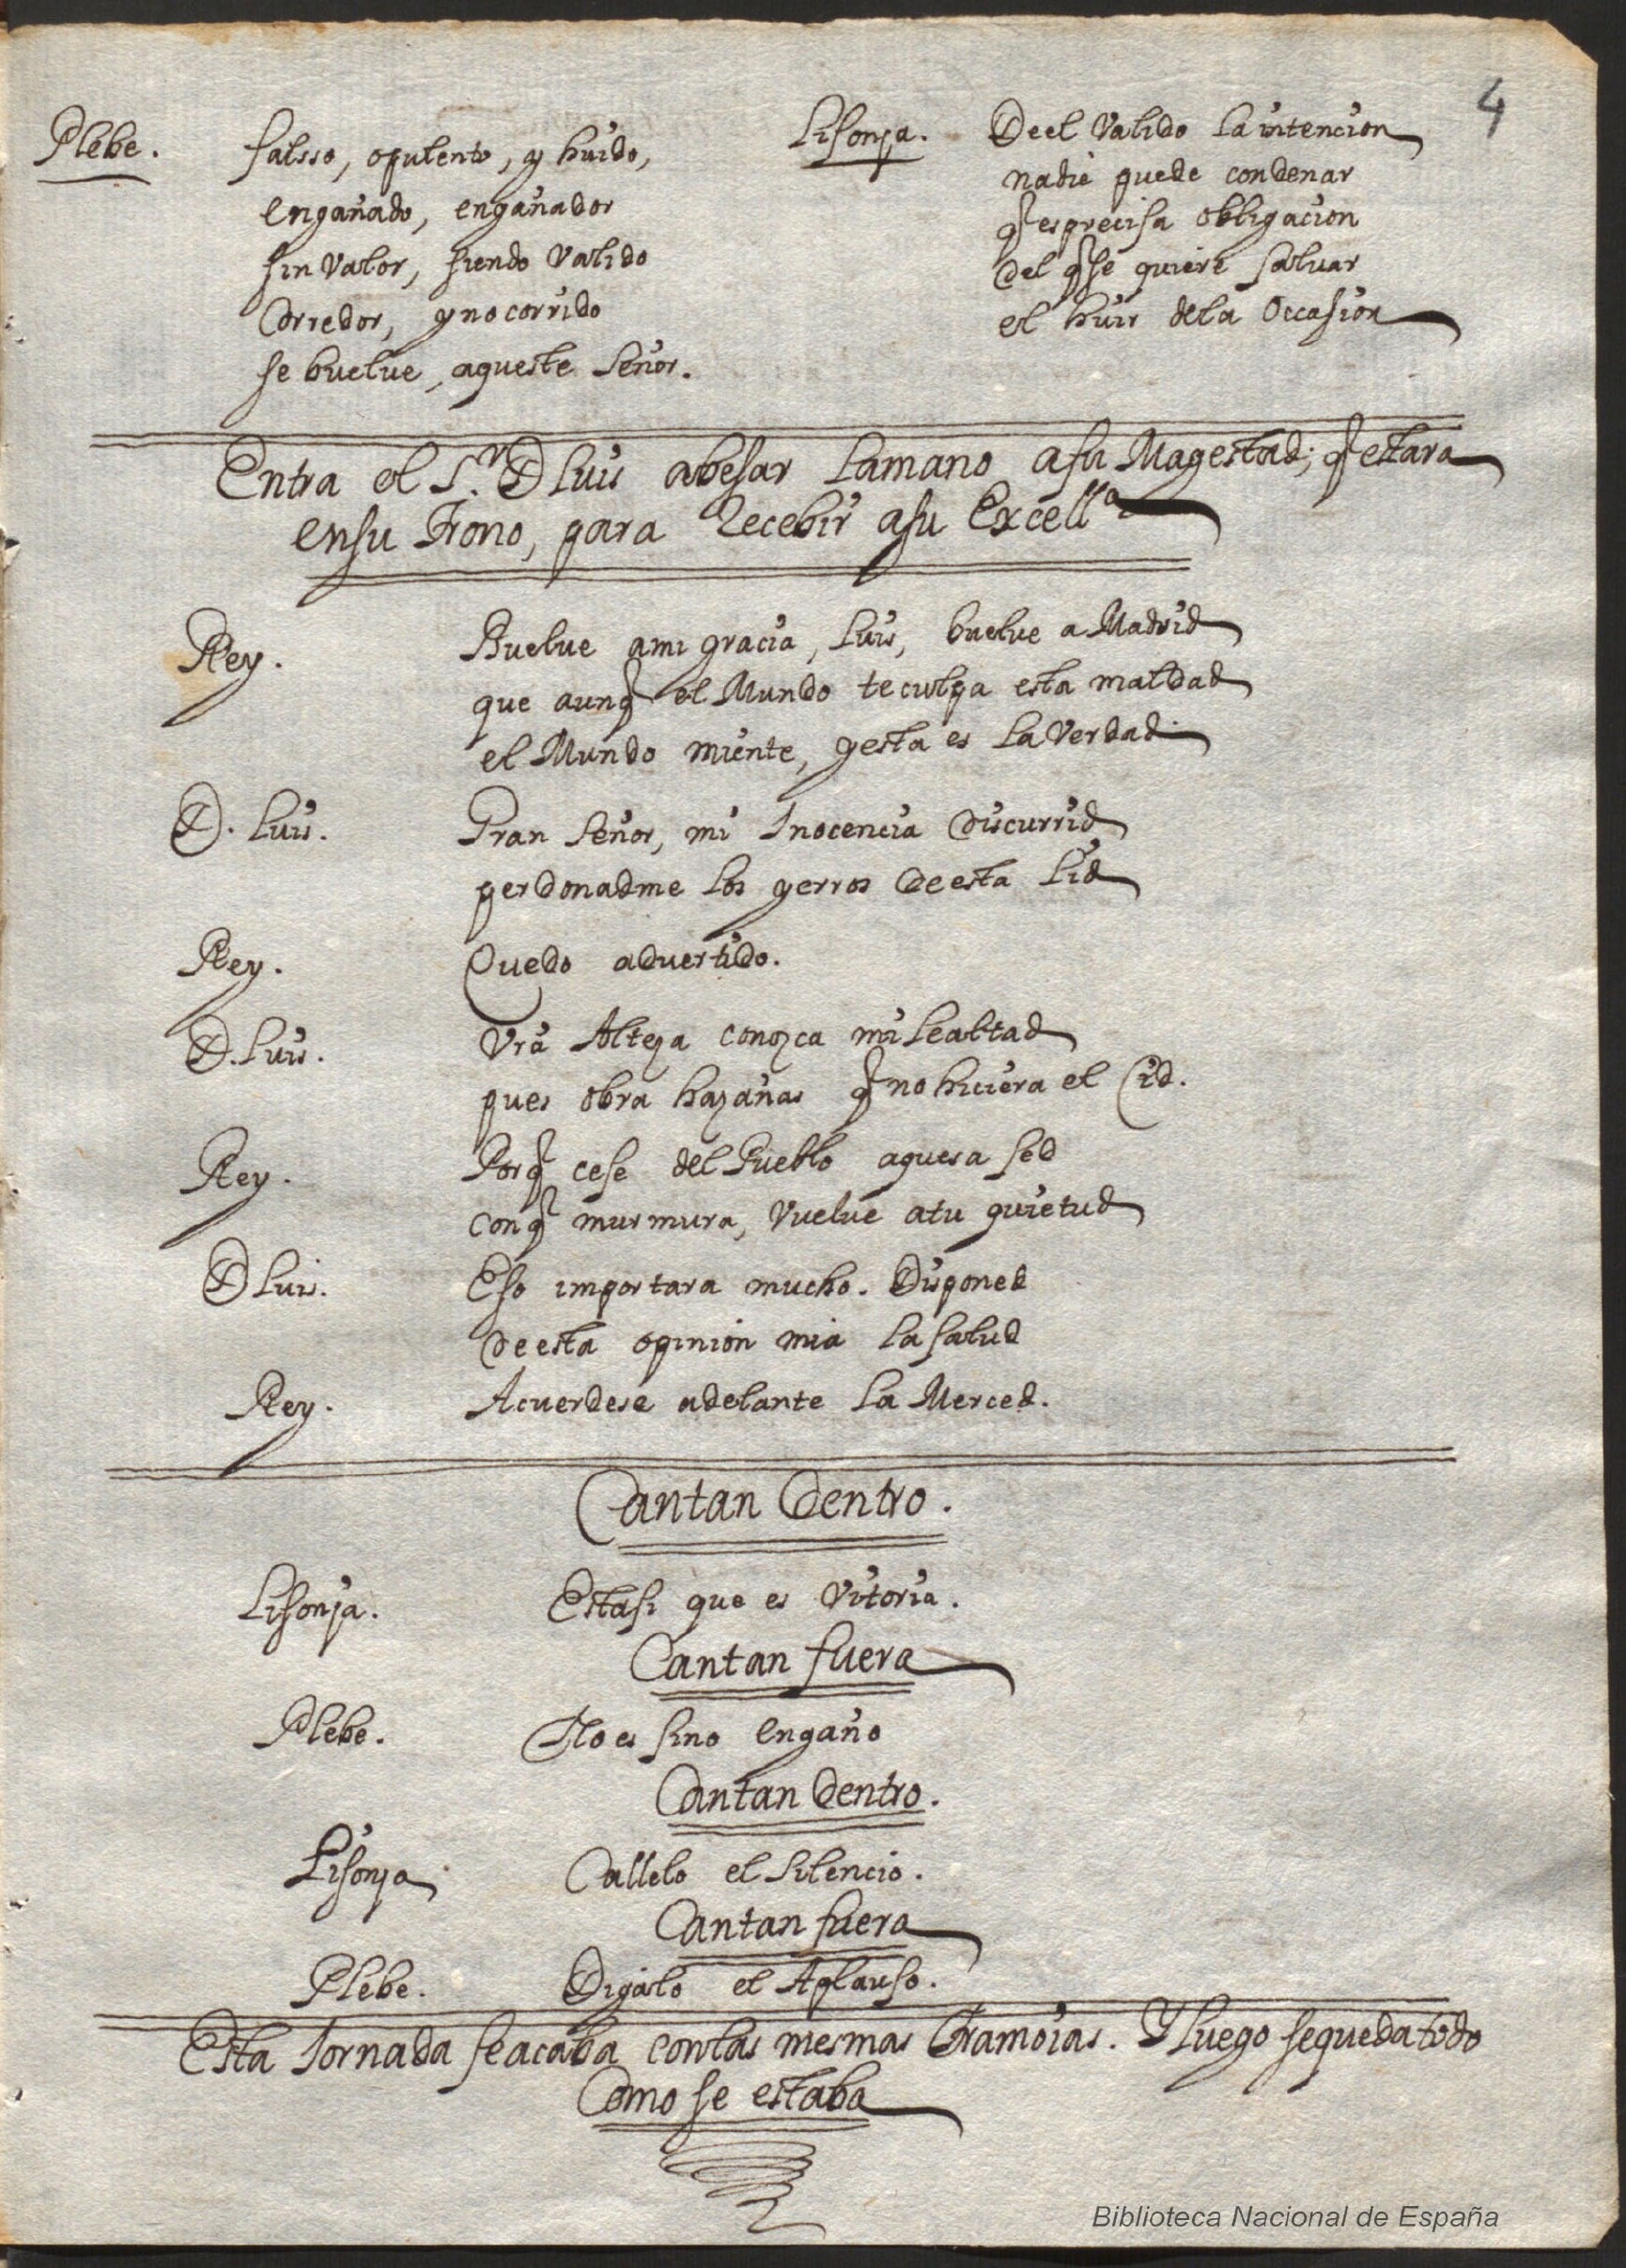 4
Plebe. falsso, opulento, y huido,
engañado, engañador
sin valor, siendo valido
Corredor, y no corrido
se buelue, aqueste Señor.
Lisonja. De el Valido la intencion
nadie puede condenar
q̃ es precisa obligacion
del q̃ se quiere saluar
el huir dela Occasion
Entra el S.r D Luis abesar lamano asu Magestad; q̃ estara
ensu Trono, para Recebir asu Excell.ª
Rey. Buelue ami gracia, Luis, buelue a Madrid
que aunq̃ el Mundo teculpa esta maldad
el Mundo miente, yesta es la Verdad
D. Luis. Gran Señor, mi Inocencia discurrid
perdonadme los yerros de esta Lid
Rey. Quedo aduertido.
D. Luis. Vrã Alteza conozca mi Lealtad
pues obra hazañas q̃ no hiciera el Cid.
Rey. Porq̃ cese del Pueblo aquesa sed
conq̃ murmura, vuelue atu quietud
D Luis. Eso importara mucho. Disponed
de esta opinion mia la salud
Rey. Acuerdese adelante la Merced.
Cantan dentro.
Lisonja. Estasi que es Vitoria.
Cantan fuera
Plebe. No es sino engaño
Cantan dentro.
Lisonja Callelo el silencio.
Cantan fuera
Plebe. Digalo el Aplauso.
Esta Jornada seacaba conlas mesmas tramoias. Y luego sequeda todo
Como se estaba
Biblioteca Nacional de España